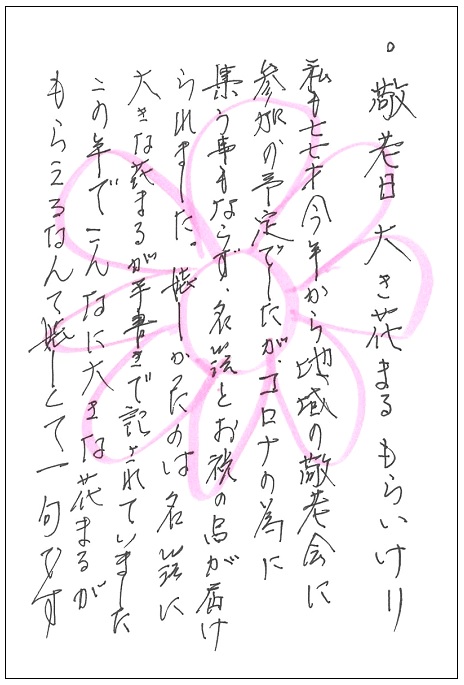 。敬老日 大き花まる もらいけり
私も七七才今年から地域の敬老会に
参加の予定でしたが、コロナの為に
集う事もならず、名簿とお祝の品が届け
られました。嬉しかったのは 名簿に
大きな花まるが手書きで記されていました
この年でこんなに大きな花まるが
もらえるなんて嬉しくて一句です